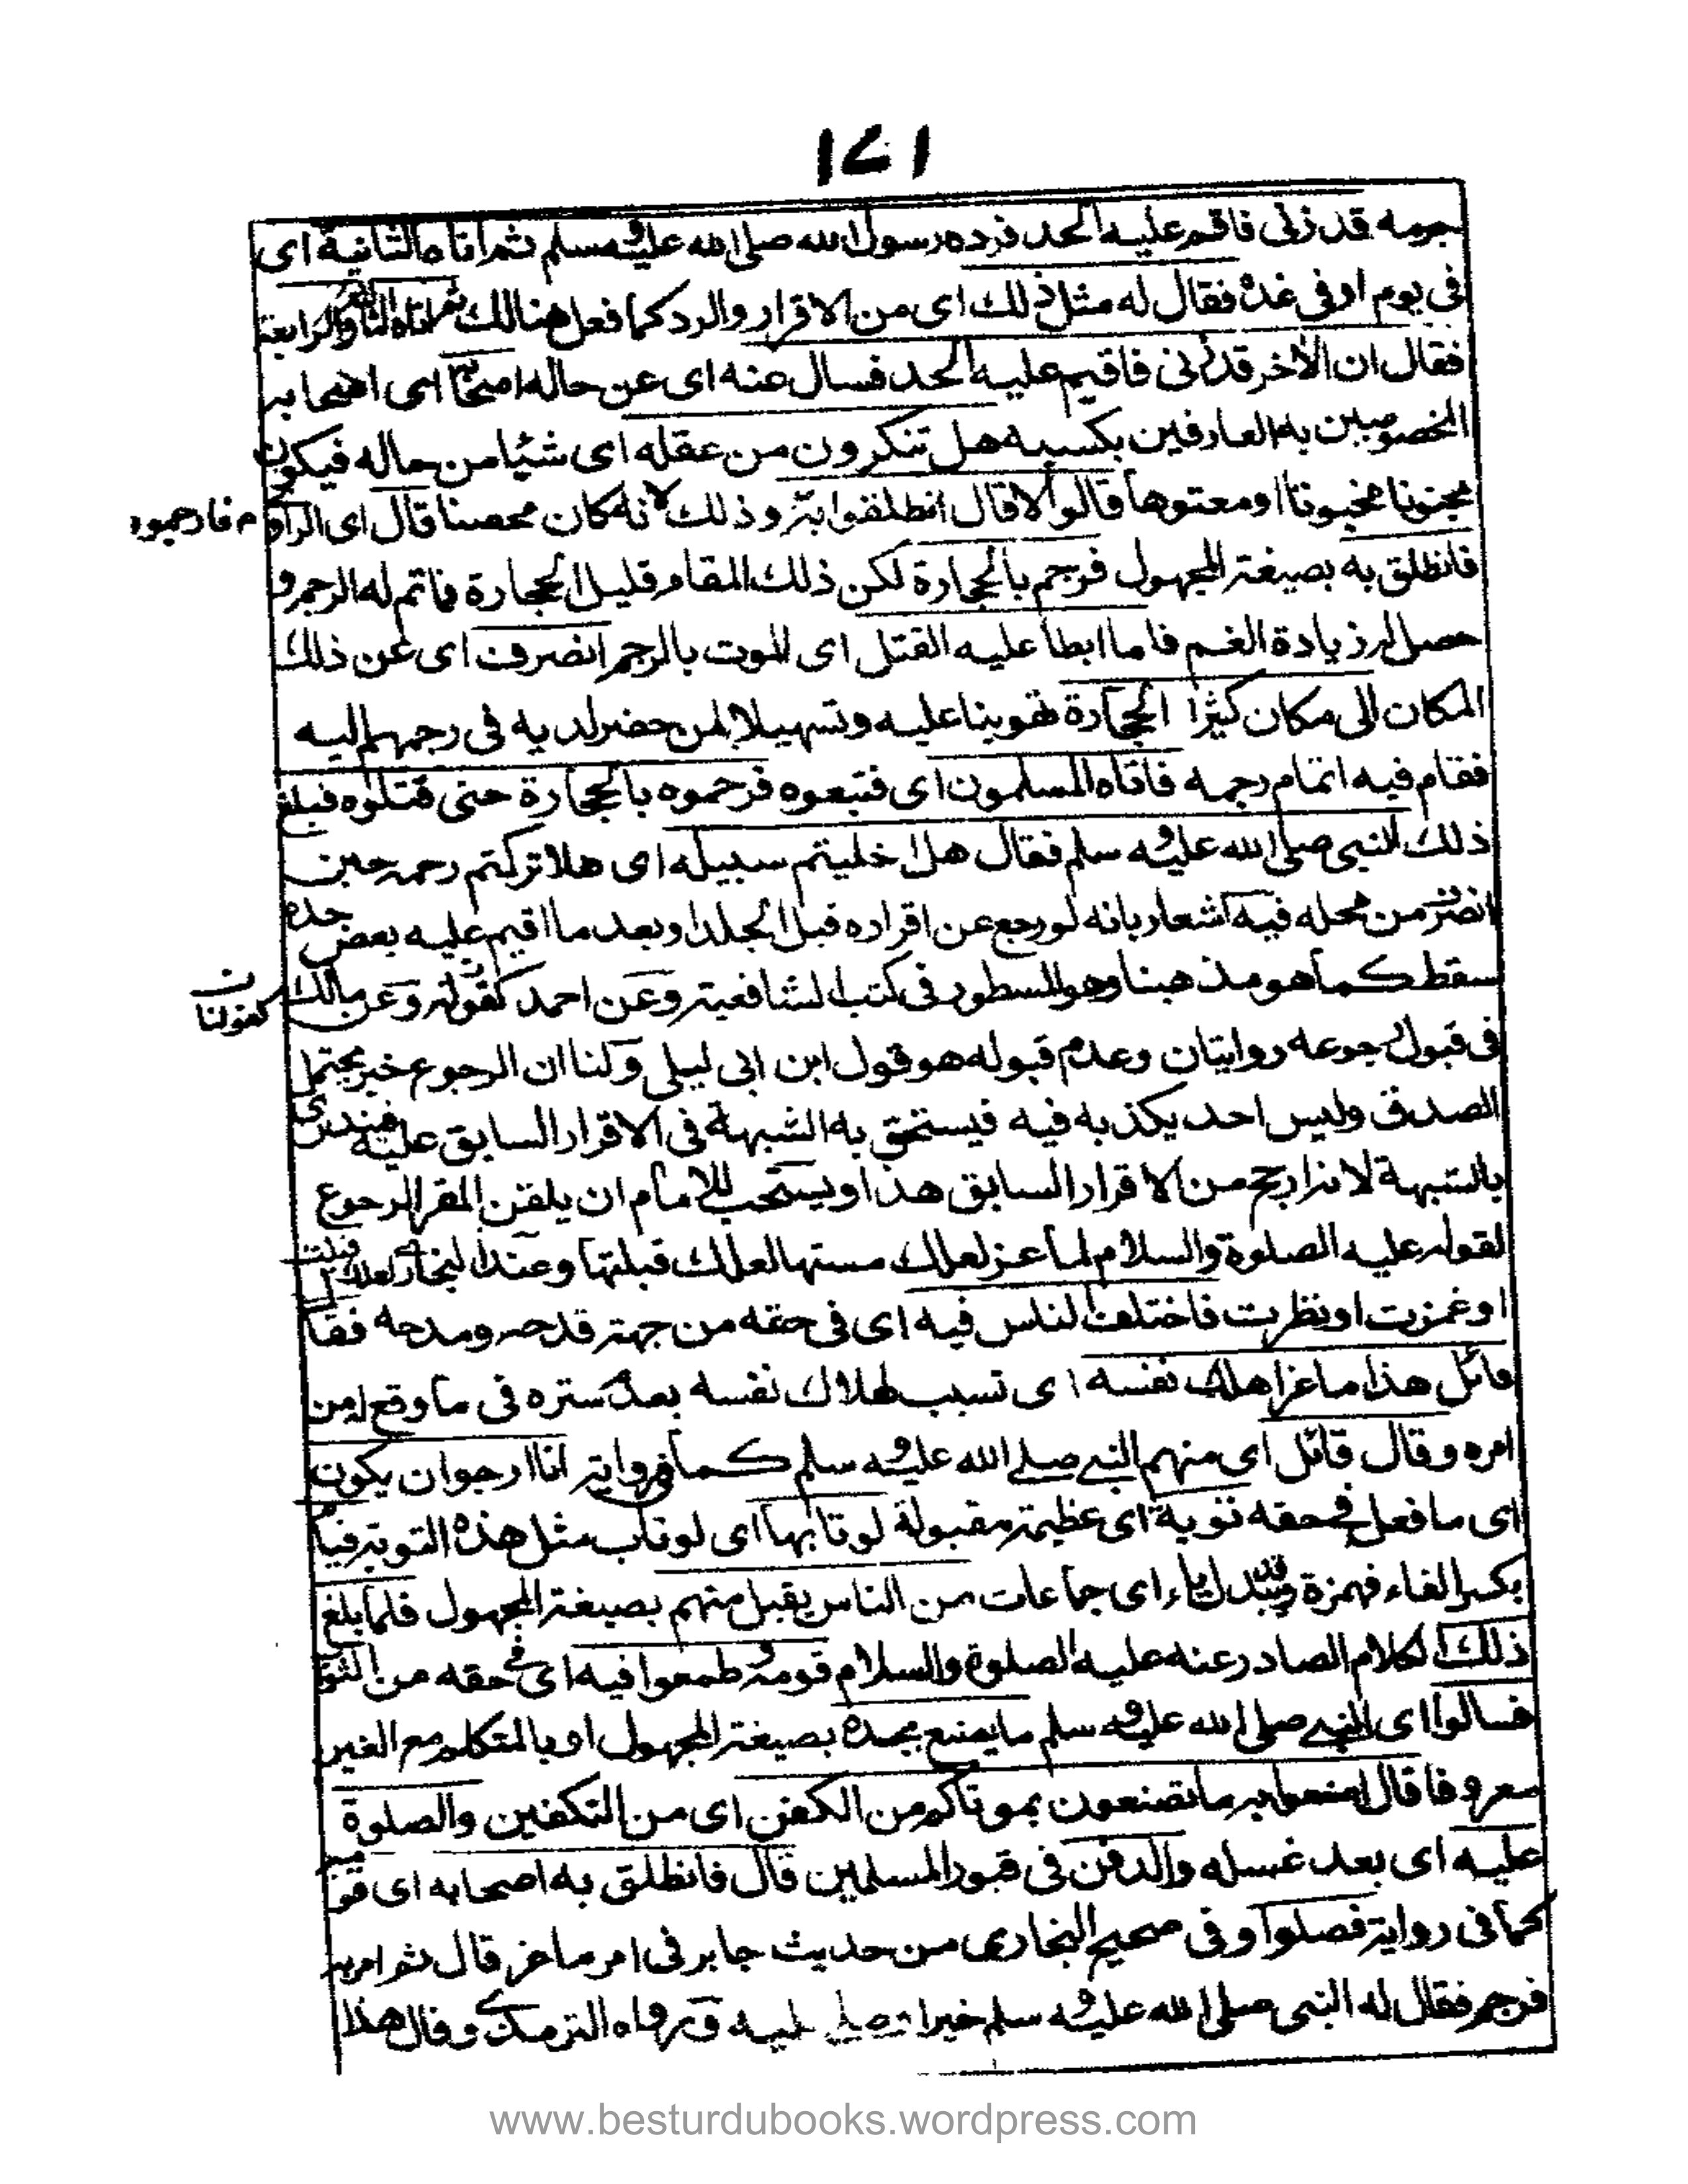 ١٧١
جرمه قد زنى فاقم عليه الحد فرده رسول الله صلى الله عليه وسلم ثم اتاه الثانية اى
فى يوم او فى غده فقال له مثل ذلك اى من الاقرار والرد كما فعل هنالك ثم اتاه الثالثة والرابعة
فقال ان الاٰخر قد زنى فاقيم عليه الحد فسال عنه اى عن حاله اصحابه اى اصحابه
المخصوصين به العارفين بكسبه هل تنكرون من عقله اى شيئا من حاله فيكون
مجنونا مخبوتا او معتوها قالوا لا قال انطلقوا به وذلك لانه كان محصنا قال اى الراوى
م فارجموه
فانطلق به بصيغة المجهول فرجم بالحجارة لكن ذلك المقام قليل الحجارة فاتم له الرجم و
حصل له زيادة الغم فاما ابطأ عليه القتل اى الموت بالرجم انصرف اى عن ذلك
المكان الى مكان كثيرا الحجارة تهوينا عليه وتسهيلا لمن حضر لديه فى رجمهم اليه
فقام فيه اتمام رجمه فاتاه المسلمون اى فتبعوه فرجموه بالحجارة حتى قتلوه فبلغ
ذلك النبى صلى الله عليه و سلم فقال هلا خليتم سبيله اى هلا تركتم رجمه حين
انصرف من محله فيه اشعار بانه لو رجع عن اقراره قبل الجلد او بعد ما اقيم عليه بعض حده
سقط كما هو مذهبنا وهو المسطور فى كتب الشافعية وعن احمد كقوله وعن مالك
كقولنا
فى قبول رجوعه روايتان وعدم قبوله هو قول ابن ابى ليلى ولنا ان الرجوع خبر يحتمل
الصدق وليس احد يكذبه فيه فيستحق به الشبهة فى الاقرار السابق عليه فيندرئ
بالشبهة لانه ارجح من الاقرار السابق هذا ويستحب للامام ان يلقن المقر الرجوع
لقوله عليه الصلوة والسلام لماعز لعلك مستها لعلك قبلتها وعند البخارى لعلك قبلت
او غمزت او نظرت فاختلف الناس فيه اى فى حقه من جهة قدحه ومدحه فقا
قائل هذا ماعز اهلك نفسه اى تسبب لهلاك نفسه بعد ستره فى ما وقع له من
امره وقال قائل اى منهم النبى صلى الله عليه و سلم كما فى رواية انا ارجو ان يكون
اى ما فعل فى حقه توبة اى عظيمة مقبولة لو تابها اى لو تاب مثل هذه التوبة فيام
بكسر الفاء فهمزة وقد تبدل ياء اى جماعات من الناس يقبل منهم بصيغة المجهول فلما بلغ
ذلك الكلام الصادر عنه عليه الصلوة والسلام قومه وطمعوا فيه اى فى حقه من
فسالوا اى النبى صلى الله عليه و سلم ما يصنع بجسده بصيغة المجهول او بالمتكلم مع الغير
معروفا قال اصنعوا به ما تصنعون بموتاكم من الكفن اى من التكفين والصلوة
عليه اى بعد غسله والدفن فى قبور المسلمين قال فانطلق به اصحابه اى قومه
كما فى رواية فصلوا وفى صحيح البخارى من حديث جابر فى امر ماعز قال ثم امر به
فرجم فقال له النبى صلى الله عليه و سلم خيرا وصلى عليه ورواه الترمذى وقال هذا
www.besturdubooks.wordpress.com